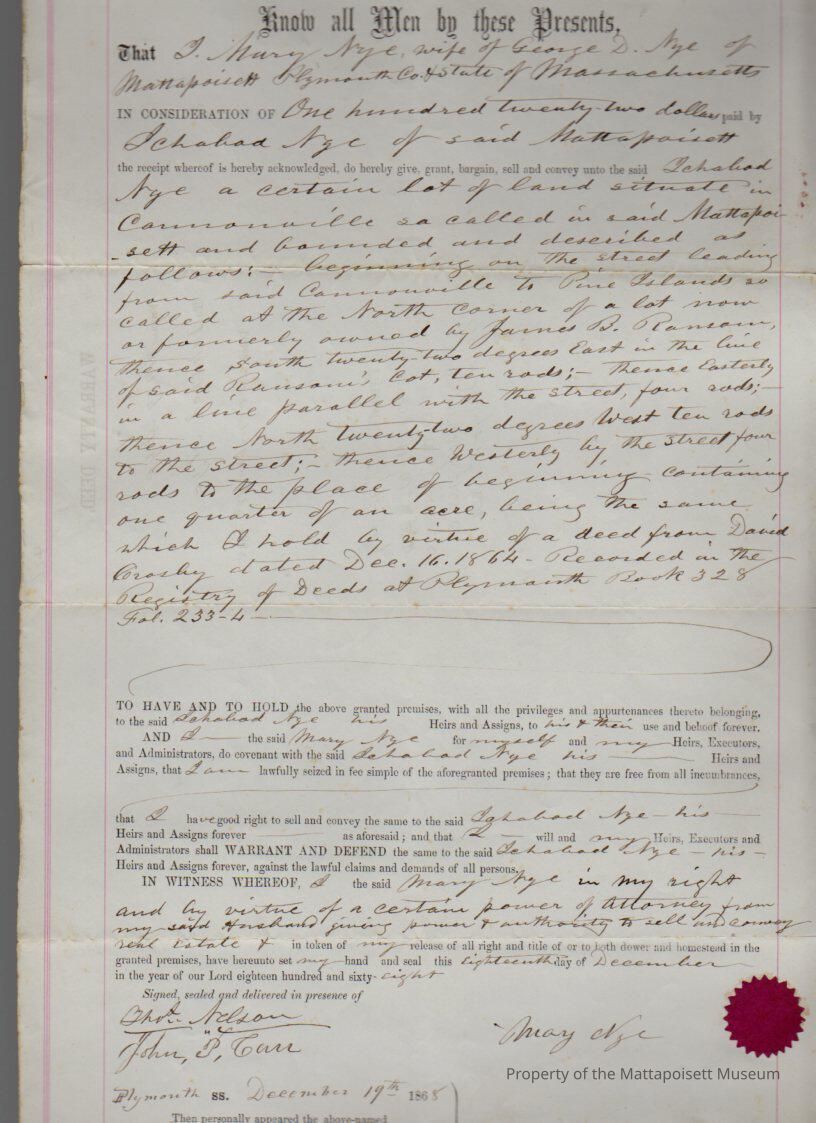 Know all Men by these Presents,
That I, Mary Nye, wife of George D. Nye of
Mattapoisett Plymouth Co. & State of Massachusetts
IN CONSIDERATION OF One hundred twenty-two dollars paid by
Ichabod Nye of said Mattapoisett
the receipt whereof is hereby acknowledged, do hereby give, grant, bargain, sell and convey unto the said Ichabod
Nye a certain lot of land situate in
Cannonville so called in said Mattapoi-
-sett and bounded and described as
follows:- beginning on the street leading
from said Cannonville to Pine Islands so
called at the North corner of a lot now
or formerly owned by James B. Ransom,
thence South twenty-two degrees East in the line
of said Ransom's lot, ten rods;- thence Easterly
in a line parallel with the street, four rods;-
thence North twenty-two degrees West ten rods
to the street;- thence Westerly by the street four
rods to the place of beginning containing
one quarter of an acre, being the same
which I hold by virtue of a deed from David
Crosby dated Dec. 16. 1864 - Recorded in the
Registry of Deeds at Plymouth Book 328
Fol. 233-4
TO HAVE AND TO HOLD the above granted premises, with all the privileges and appurtenances thereto belonging,
to the said Ichabod Nye his Heirs and Assigns, to his & their use and behoof forever.
AND I the said Mary Nye for myself and my Heirs, Executors,
and Administrators, do covenant with the said Ichabod Nye his Heirs and
Assigns, that I am lawfully seized in fee simple of the aforegranted premises; that they are free from all incumbrances,
that I have good right to sell and convey the same to the said Ichabod Nye - his -
Heirs and Assigns forever as aforesaid; and that I will and my Heirs, Executors and
Administrators shall WARRANT AND DEFEND the same to the said Ichabod Nye - his -
Heirs and Assigns forever, against the lawful claims and demands of all persons.
IN WITNESS WHEREOF, I the said Mary Nye in my right
and by virtue of a certain power of Attorney from
my said Husband giving power & authority to sell and convey
real Estate & in token of my release of all right and title of or to both dower and homestead in the
granted premises, have hereunto set my hand and seal this eighteenth day of December
in the year of our Lord eighteen hundred and sixty-eight
Signed, sealed and delivered in presence of
Thos. Nelson
John, P, Carr
Mary Nye
Property of the Mattapoisett Museum
Plymouth ss. December 19th 1868
Then personally appeared the above-named
WARRANTY DEED.